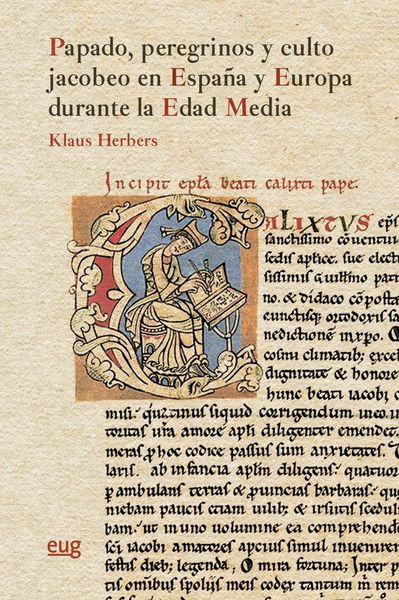 Papado, peregrinos y culto
jacobeo en España y Europa
durante la Edad Media
Klaus Herbers
Incipit epła beati calixti pape.
CALIXTVS ep̄s
sanctissimo cōventui
sedis aplice. sue elect
sissimis guiłłmo patri
no. & didaco cōposte
cunctisq; ortodoxis
nedictionē in xpo.
cosmi climatib; excel
dignitate & honore
hunc beati iacobi c
misi. quatinus siquid corrigendum
toritas ura amore apłi diligenter emendet.
meras p hoc codice passus sum anxietates.
laris. ab infancia apłm diligens. quatuor
p ambulans terras & puincias barbaras.
niebam paucis &
bam. ut in uno uolumine ea comprehende
sci iacobi amatores apcius simul inuenirent
festis dieb; legenda. O mira fortuna; Inter
tis omib; spoliis meis codex tantum
eug